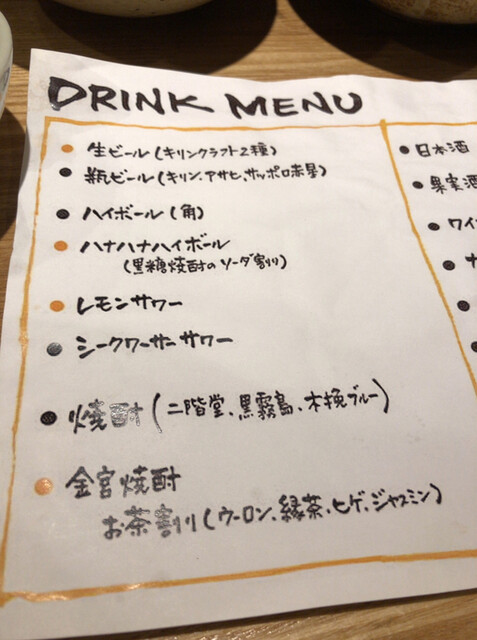 DRINK MENU
生ビール(キリンクラフト2種)
瓶ビール(キリン、アサヒ、サッポロ赤星)
ハイボール(角)
ハナハナハイボール
(黒糖焼酎のソーダ割り)
レモンサワー
シークワーサーサワー
焼酎(二階堂、黒霧島、木挽ブルー)
金宮焼酎
お茶割り(ウーロン、緑茶、ヒゲ、ジャスミン)
日本酒
果実酒
ワイ